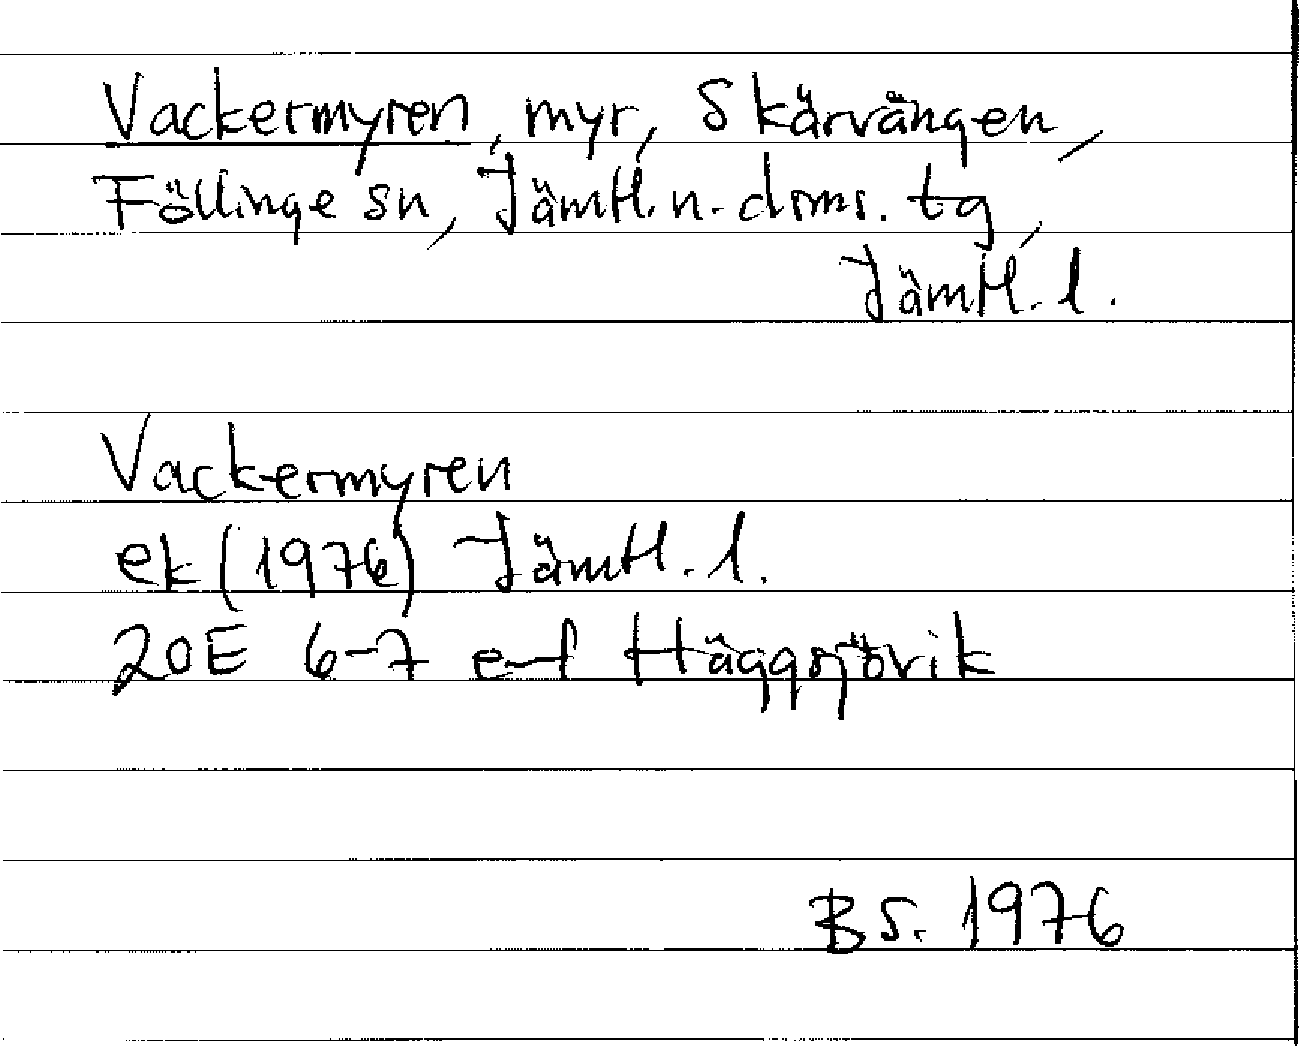 Vackermyren, myr, Skärvången,
Föllinge sn, Jämtl. n. doms. tg,
Jämtl. l.
Vackermyren
ek (1976) Jämtl. l.
20E 6-7 e-f Häggsjövik
BS. 1976